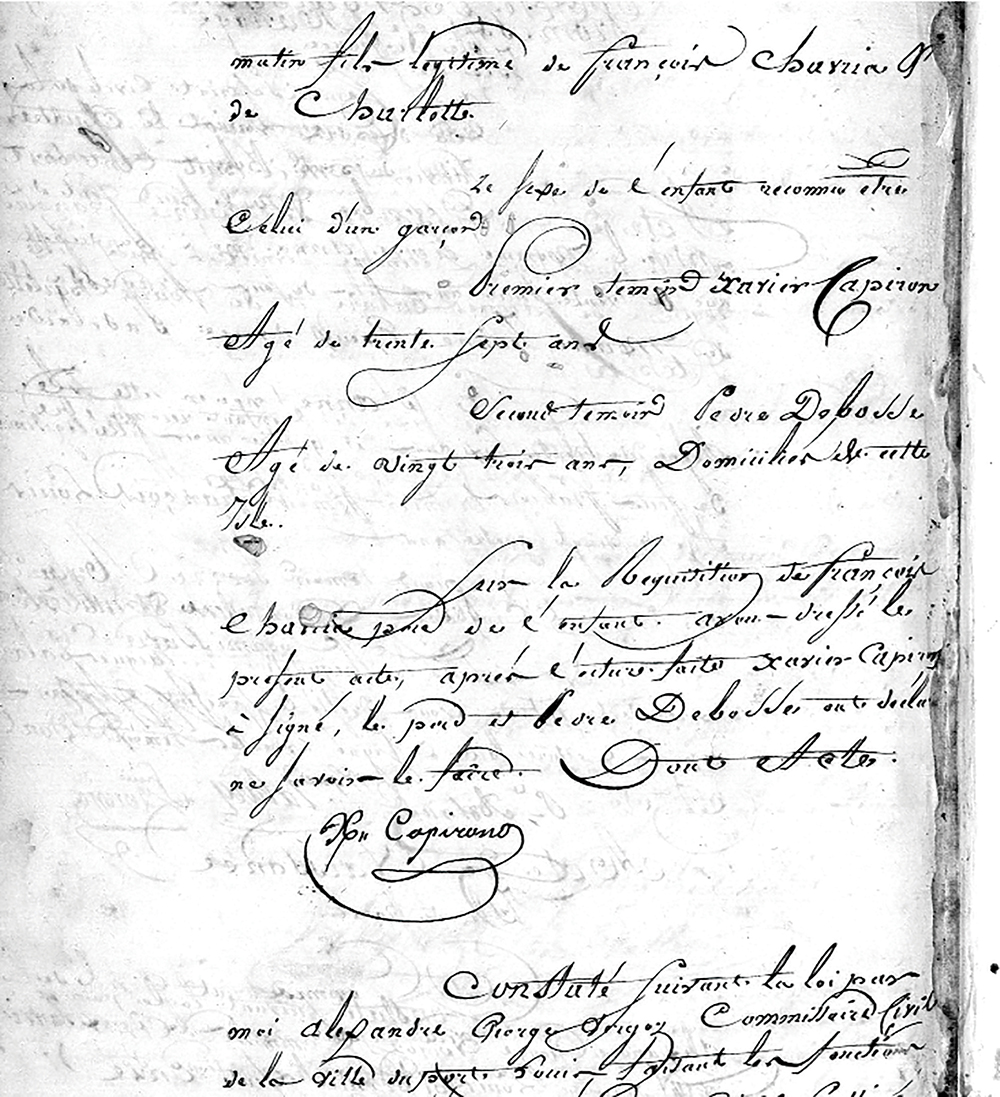 matin fils legitime de françois Charria &
de Charlotte.
Le sexe de l'enfant reconnu etre
Celui d'un garçon
Premier temoin Xavier Capiron
Agé de trente sept ans
Second temoin Pevre Debosse
Agé de vingt trois ans, Domicilier de cette
Isle.
Sur la Requisition de françois
Charria pere de l'enfant. avons dressé le
present acte, après l'ecture faite Xavier Capiron
à signé, le pere et Pevre Debosse ont decla
ne savoir le faire. Dont Acte.
Xer Capirono
Constaté suivant la loi par
moi Alexandre George Commissaire Civil
de la ville du porte Louis, faisant les fonctions